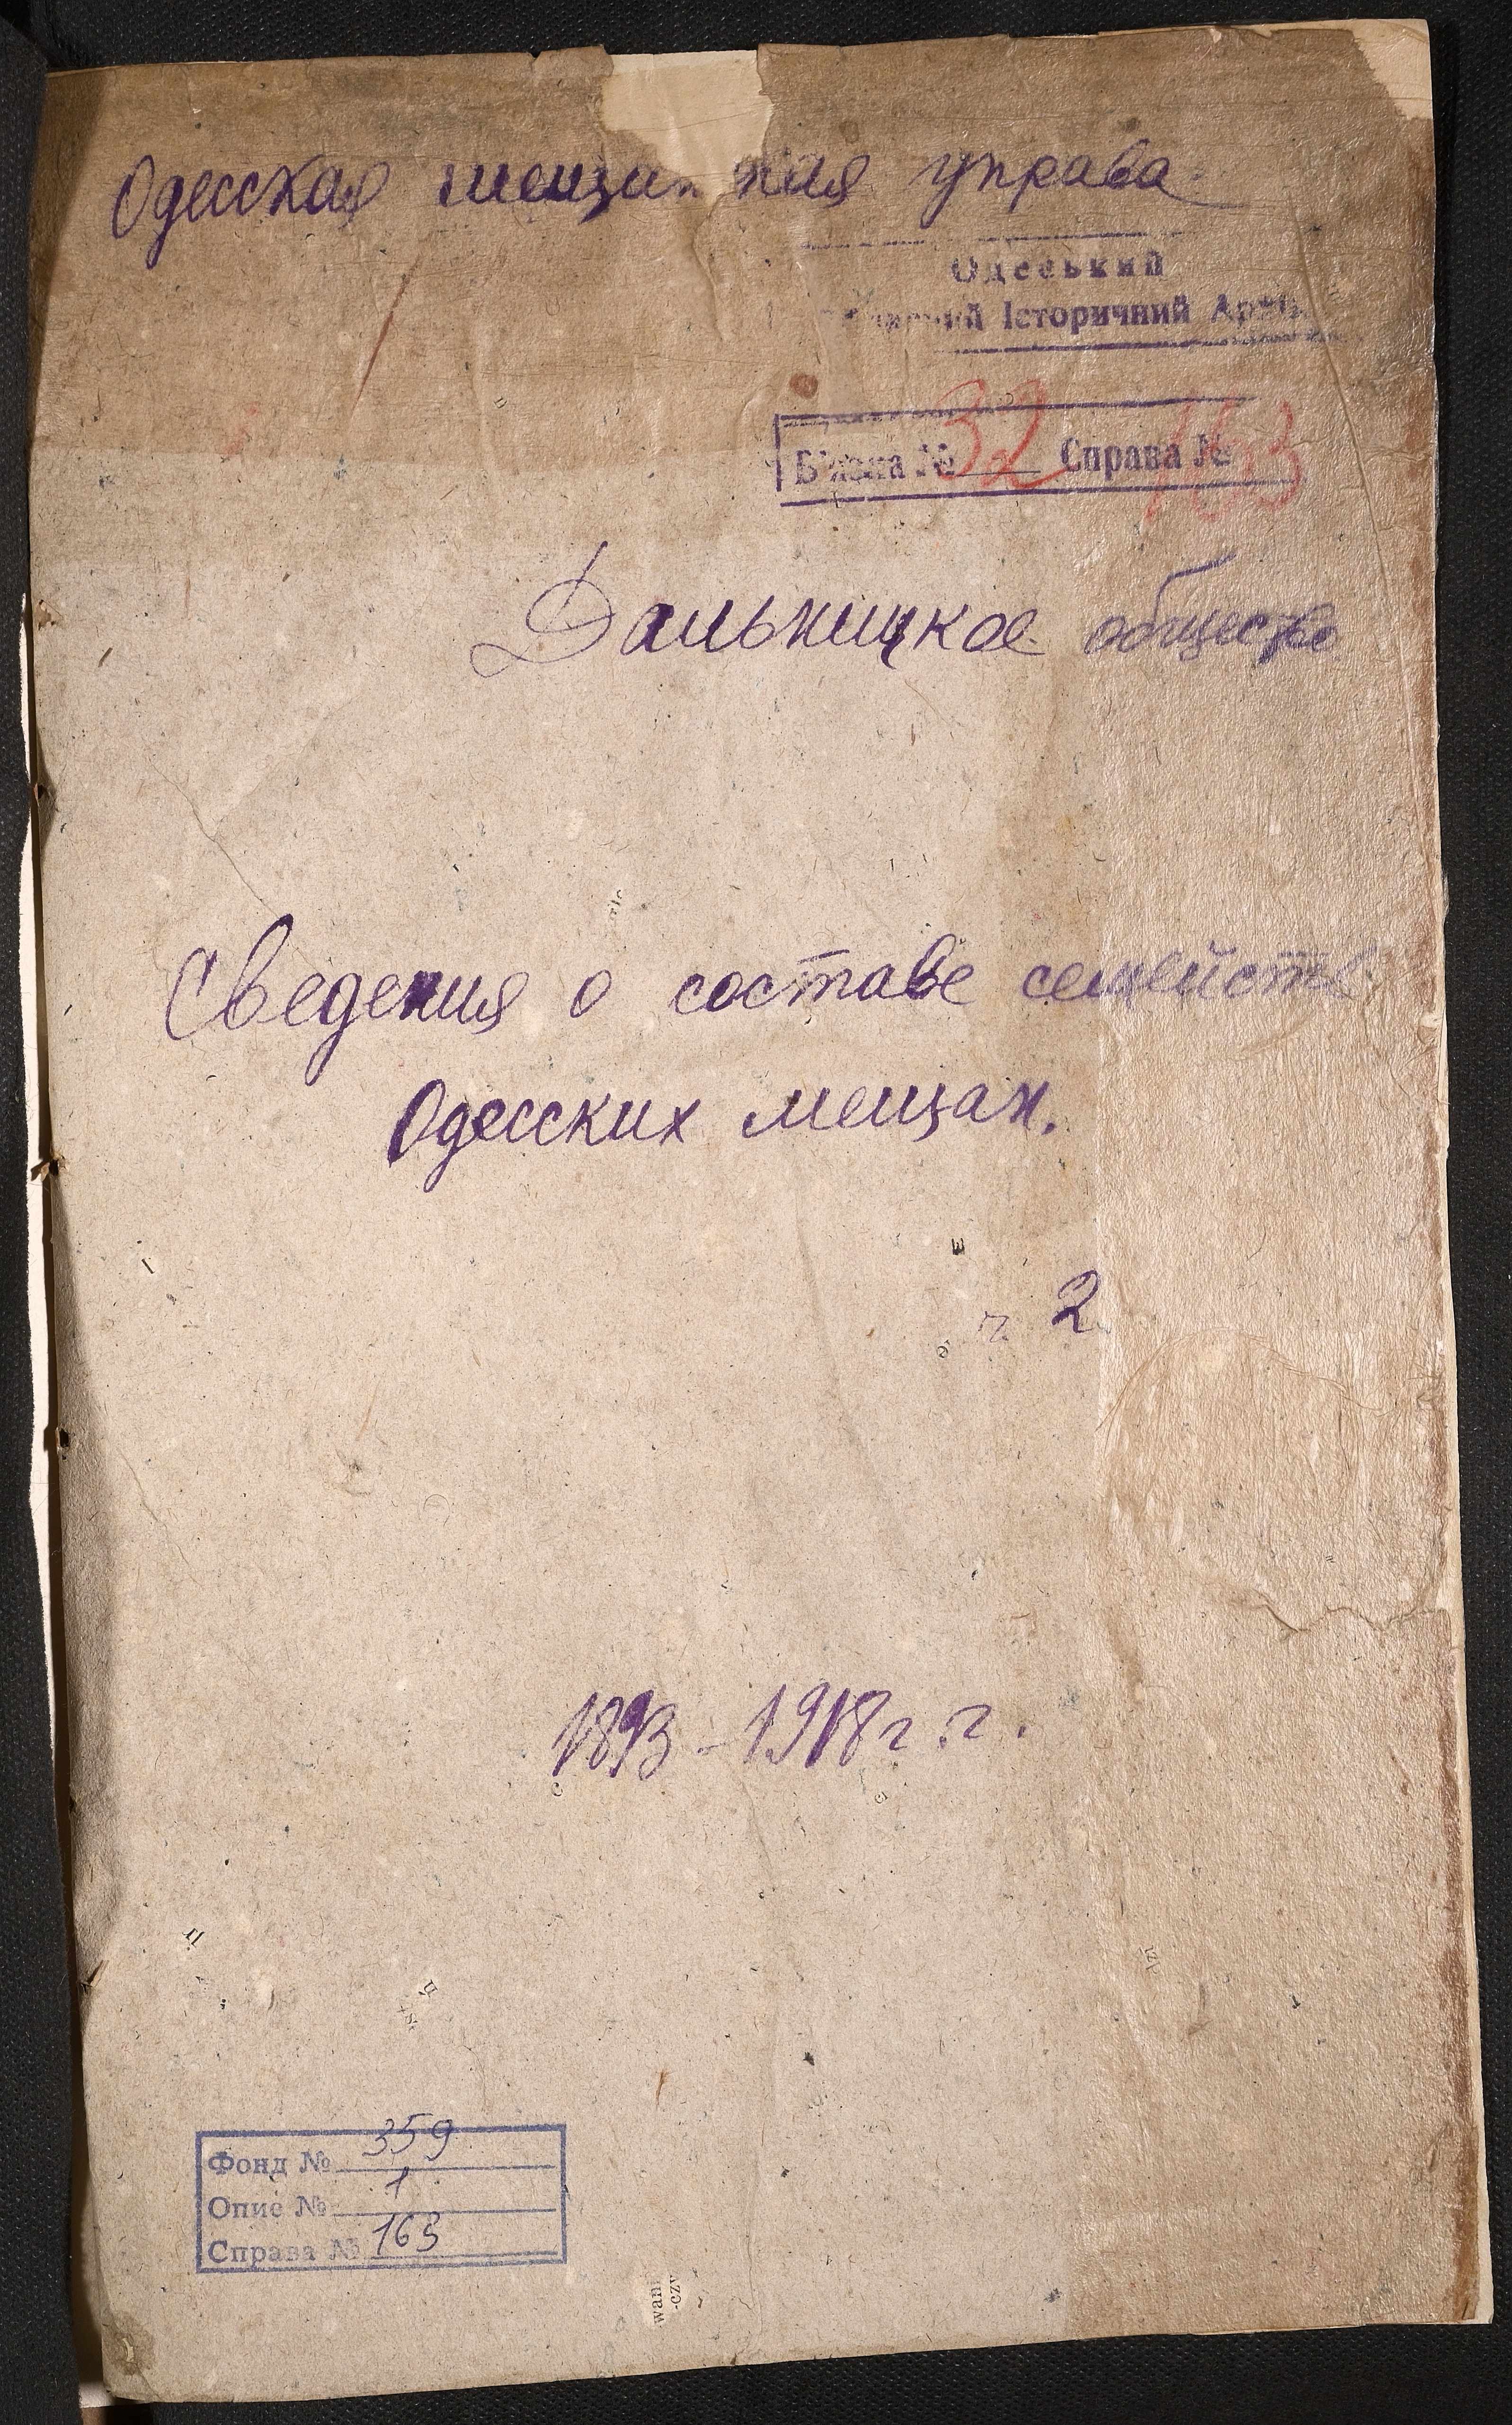 Одесская мещанская управа.
Одеський
Історичний Архів
В'язка № 32 Справа № 163
Дальницкое общество
Сведения о составе семейств
Одесских мещан.
ч. 2
1893-1918 г.г.
Фонд № 359
Опис № 1
Справа № 163